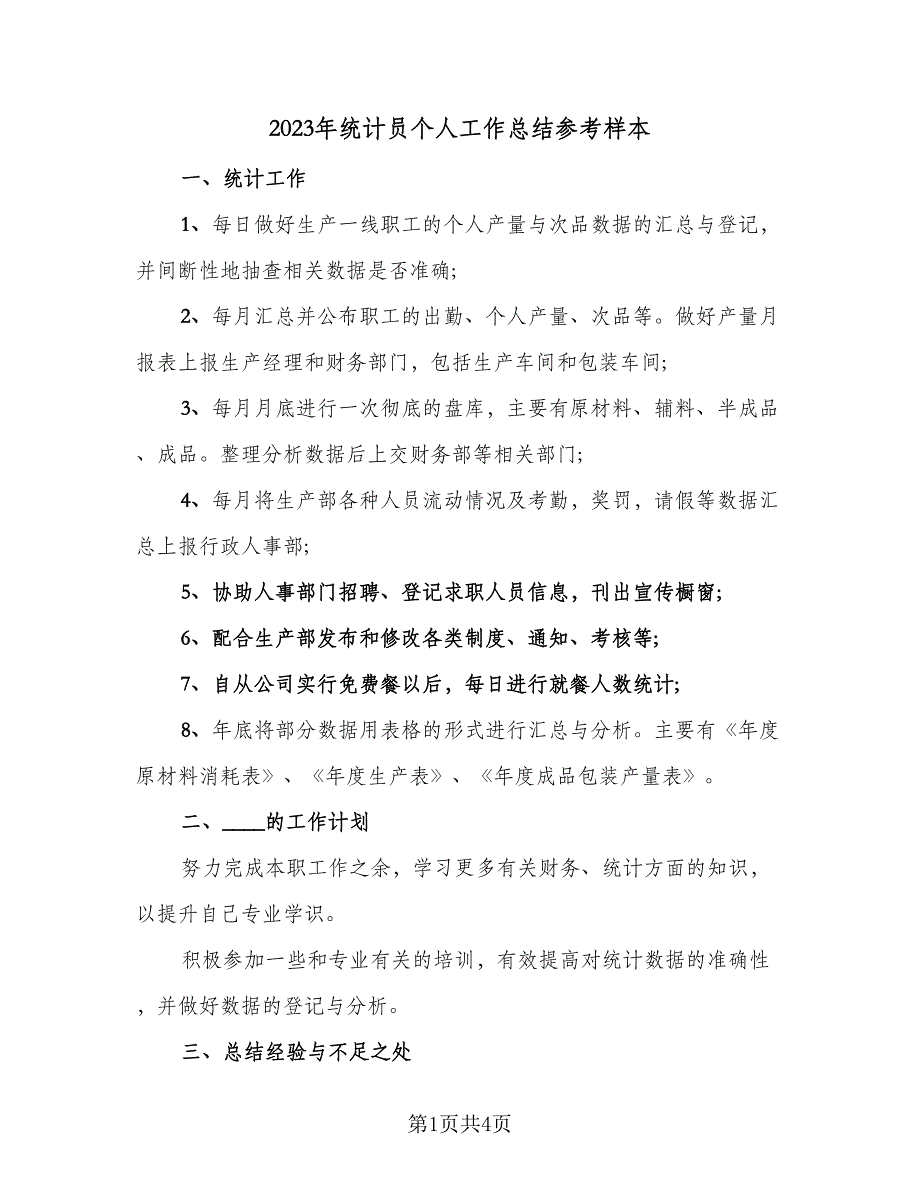 2023年统计员个人工作总结参考样本
一、统计工作
1、每日做好生产一线职工的个人产量与次品数据的汇总与登记，
并间断性地抽查相关数据是否准确;
2、每月汇总并公布职工的出勤、个人产量、次品等。做好产量月
报表上报生产经理和财务部门，包括生产车间和包装车间;
3、每月月底进行一次彻底的盘库，主要有原材料、辅料、半成品
、成品。整理分析数据后上交财务部等相关部门;
4、每月将生产部各种人员流动情况及考勤，奖罚，请假等数据汇
总上报行政人事部;
5、协助人事部门招聘、登记求职人员信息，刊出宣传橱窗;
6、配合生产部发布和修改各类制度、通知、考核等;
7、自从公司实行免费餐以后，每日进行就餐人数统计;
8、年底将部分数据用表格的形式进行汇总与分析。主要有《年度
原材料消耗表》、《年度生产表》、《年度成品包装产量表》。
二、____的工作计划
努力完成本职工作之余，学习更多有关财务、统计方面的知识，
以提升自己专业学识。
积极参加一些和专业有关的培训，有效提高对统计数据的准确性
，并做好数据的登记与分析。
三、总结经验与不足之处
第1页共4页